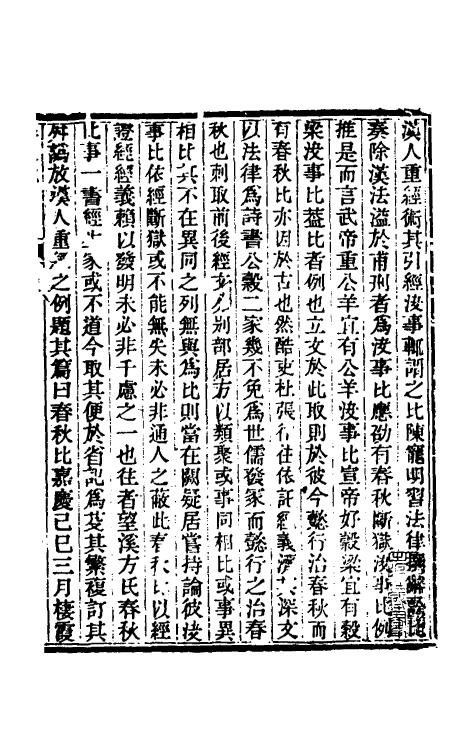 漢人重經術其引經決事輒謂之比陳寵明習法律撰辭訟比
奏除漢法溢於甫刑者為決事比應劭有春秋斷獄決事比例
推是而言武帝重公羊宜有公羊決事比宣帝好穀梁宜有穀
梁決事比葢比者例也立文於此取則於彼今懿行治春秋而
有春秋比亦因於古也然酷吏杜張行往依託經義濟其深文
以法律為詩書公穀二家幾不免為世儒發冢而懿行之治春
秋也刺取前後經文分別部居方以類聚或事同相比或事異
相比其不在異同之列無與為比則當在闕疑居嘗持論彼決
事比依經斷獄或不能無失未必非通人之蔽此春秋比以經
證經經義賴以發明未必非千慮之一也往者望溪方氏春秋
比事一書經生家或不道今取其便於省記為芟其繁複訂其
舛譌放漢人重之例題其篇曰春秋比嘉慶己巳三月棲霞